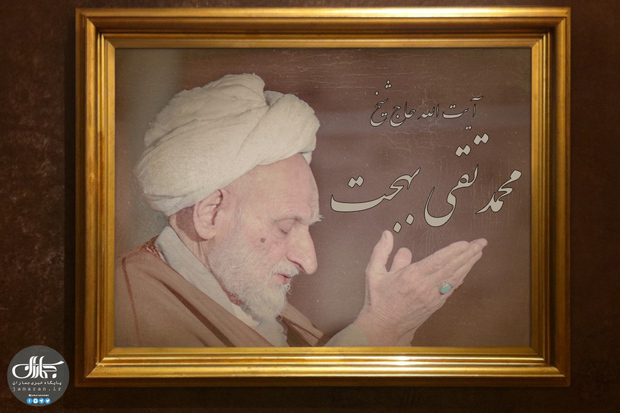 آیت الله حاج شیخ
محمد تقی بهجت
جماران
پایگاه خبری جماران
jamaran.ir